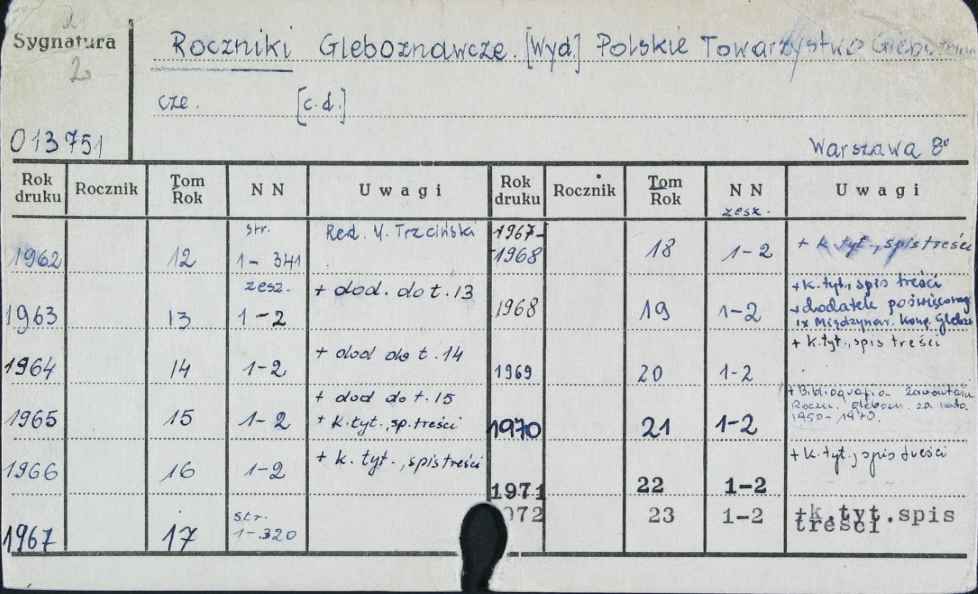 Sygnatura
2
013751
Roczniki Gleboznawcze. [Wyd] Polskie Towarzystwo
cze. [c.d.]
Warszawa 8°
Rok druku Rocznik Tom Rok NN Uwagi Rok druku Rocznik Tom Rok NN zesz. Uwagi
1962 12 str. 1-341 Red. M. Trzcińska
1963 13 zesz. 1-2 + dod. do t. 13
1964 14 1-2 + dod do t. 14
1965 15 1-2 + dod do t. 15
+ k.tyt., sp. treści
1966 16 1-2 + k. tyt., spis treści
1967 17 str. 1-320
1967-1968 18 1-2 + k. tyt., spis treści
1968 19 1-2 + k.tyt., spis treści
+ dodatek poświęcony
IX Międzynar. Kong. Glebozn.
1969 20 1-2 + k.tyt., spis treści
1970 21 1-2 + Bibliografia zawartości
Roczn. Glebozn. za lata
1950-1970.
1971 22 1-2 + k.tyt., spis treści
1972 23 1-2 +k.tyt.spis
treści